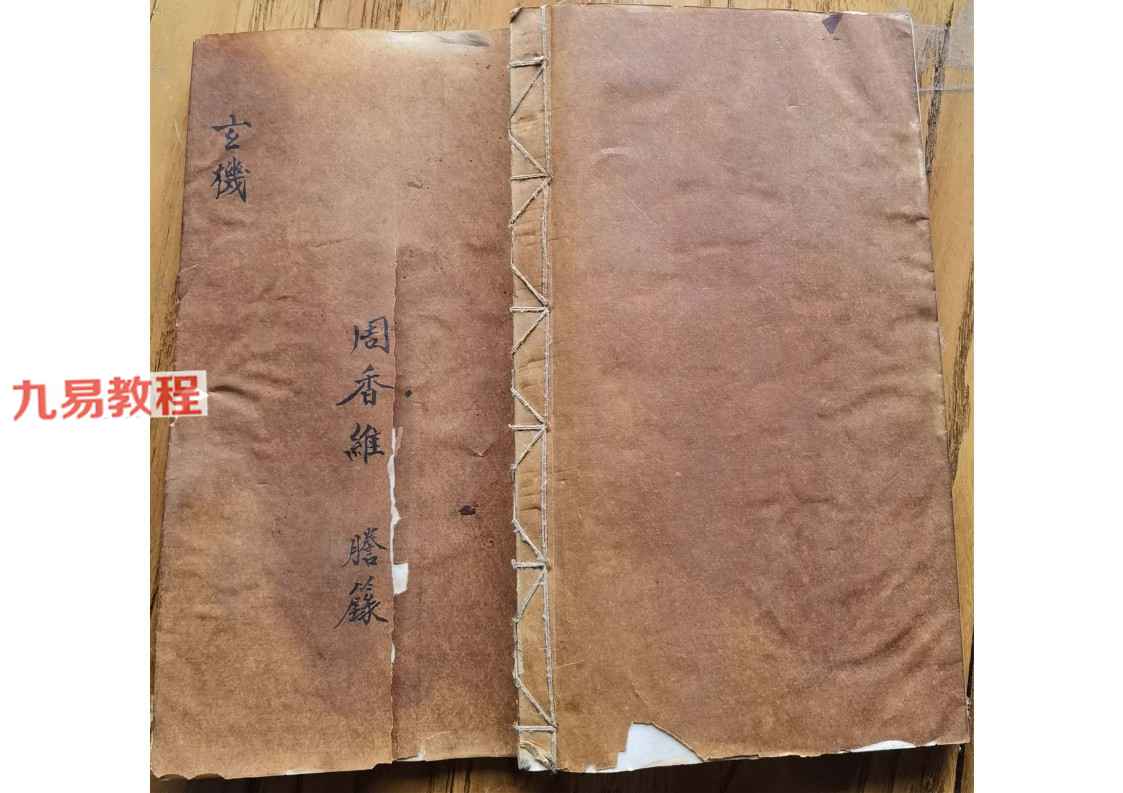 玄機
周香維 謄籙
九易教程